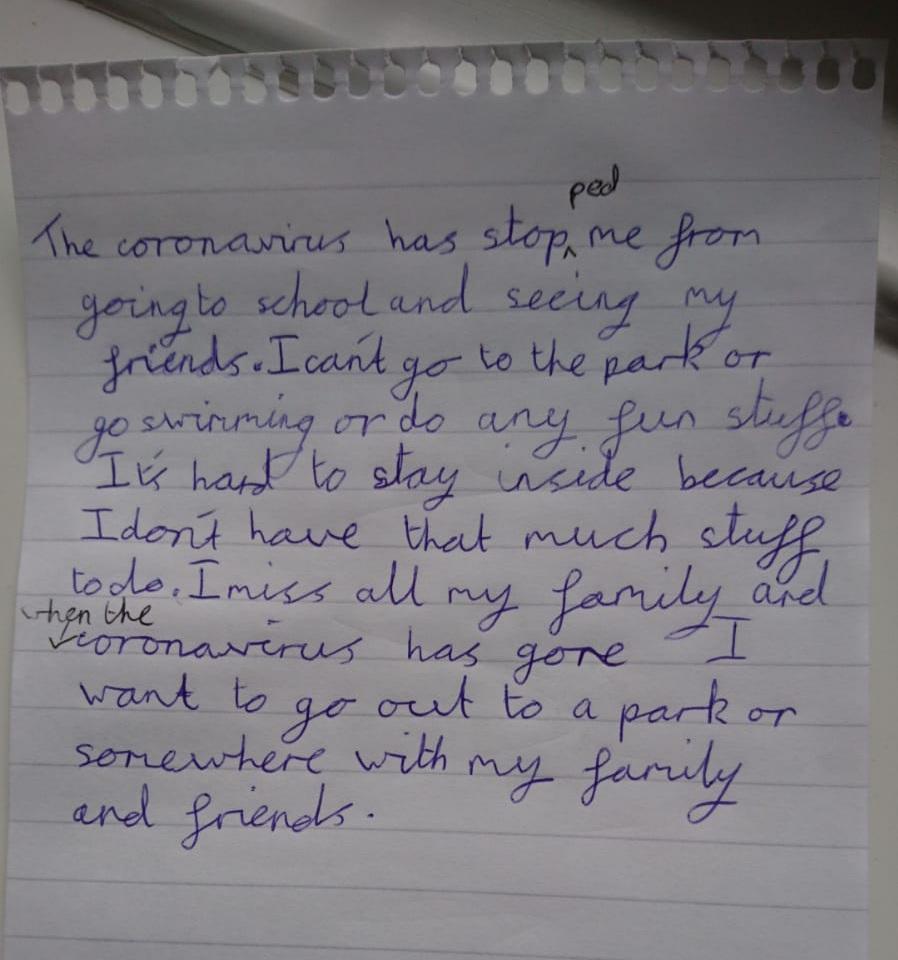 The coronavirus has stopped me from
going to school and seeing my
friends. I can't go to the park or
go swimming or do any fun stuff.
It's hard to stay inside because
I don't have that much stuff
to do. I miss all my family and
when the
coronavirus has gone I
want to go out to a park or
somewhere with my family
and friends.